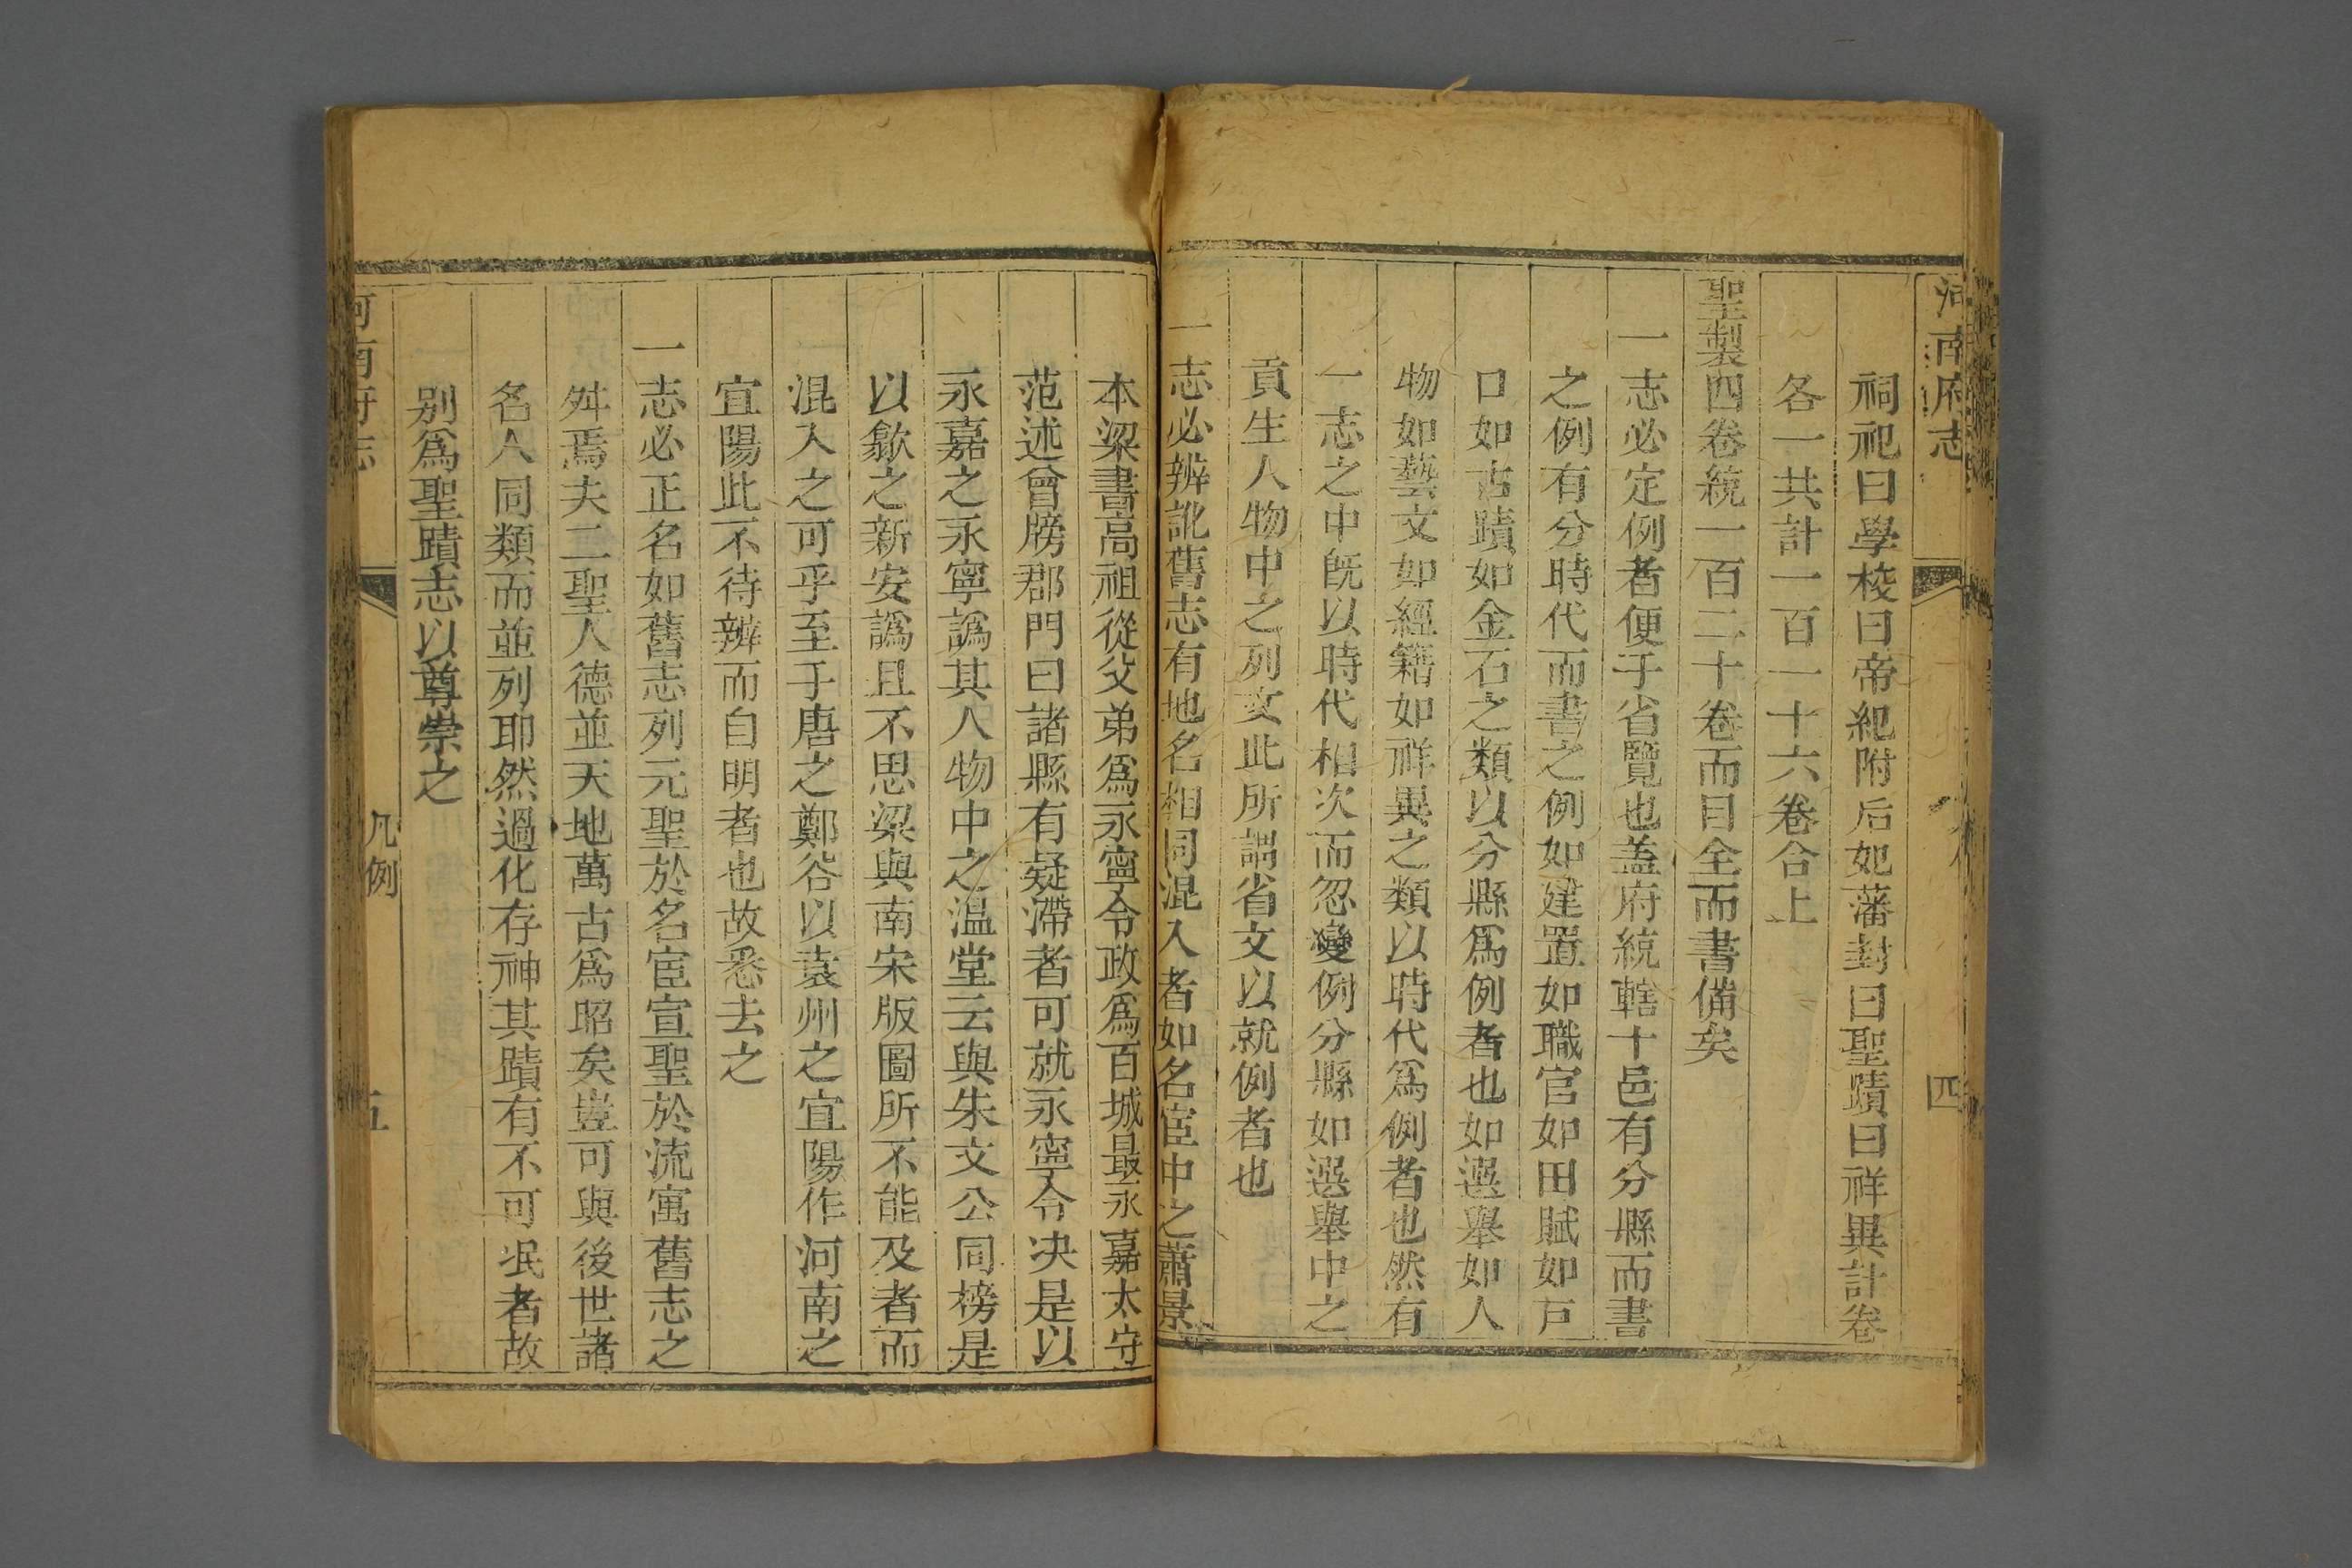 河南府志
四
祠祀曰學校曰帝紀附后妃藩封曰聖蹟曰祥異計卷
各一共計一百一十六卷合上
聖製四卷統一百二十卷而目全而書備矣
一志必定例者便于省覽也蓋府統轄十邑有分縣而書
之例有分時代而書之例如建置如職官如田賦如戸
口如古蹟如金石之類以分縣爲例者也如選舉如人
物如藝文如經籍如祥異之類以時代爲例者也然有
一志之中旣以時代相次而忽變例分縣如選舉中之
貢生人物中之列女此所謂省文以就例者也
一志必辨訛舊志有地名相同混入者如名宦中之蕭景
本梁書高祖從父弟爲永寧令政爲百城最永嘉太守
范述曾牓郡門曰諸縣有疑滯者可就永寧令決是以
永嘉之永寧譌其人物中之温堂云與朱文公同榜是
以歙之新安譌且不思梁與南宋版圖所不能及者而
混入之可乎至于唐之鄭谷以袁州之宜陽作河南之
宜陽此不待辨而自明者也故悉去之
一志必正名如舊志列元聖於名宦宣聖於流寓舊志之
舛焉夫二聖人德並天地萬古爲昭矣豈可與後世諸
名人同類而並列耶然過化存神其蹟有不可泯者故
别爲聖蹟志以尊崇之
河南府志
凡例
五